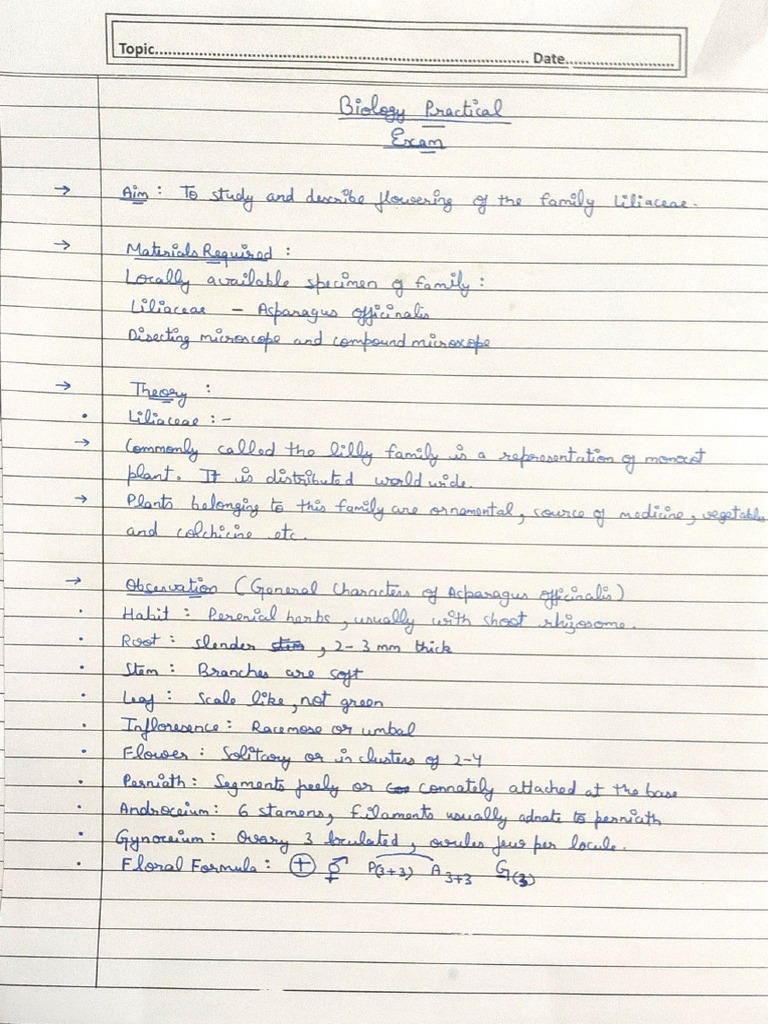 Topic.......................................................................................... Date..........................
Biology Practical
Exam
→ Aim : To study and describe flowering of the family Liliaceae.
→ Materials Required :
Locally available specimen of family :
Liliaceae - Asparagus officinalis
Disecting microscope and compound microxope
→ Theory :
• Liliaceae :-
→ Commonly called the lilly family is a representation of monocot
plant. It is distributed world wide.
→ Plants belonging to this family are ornamental, source of medicine, vegetables
and colchicine etc.
→ Observation (General Characters of Asparagus officinalis)
• Habit : Perenial herbs, usually with shoot rhizosome.
• Root : slender , 2-3 mm thick
• Stem : Branches are soft
• Leaf : Scale like, not green
• Infloresence : Racemose or umbal
• Flower : Solitary or in clusters of 2-4
• Perniath : Segments feely or connately attached at the base
• Androceium : 6 stamens, filaments usually adnate to perniath
• Gynoceium : Ovary 3 loculated, ovules few per locule.
• Floral Formula : ⊕ ⚥ P(3+3) A3+3 G(3)